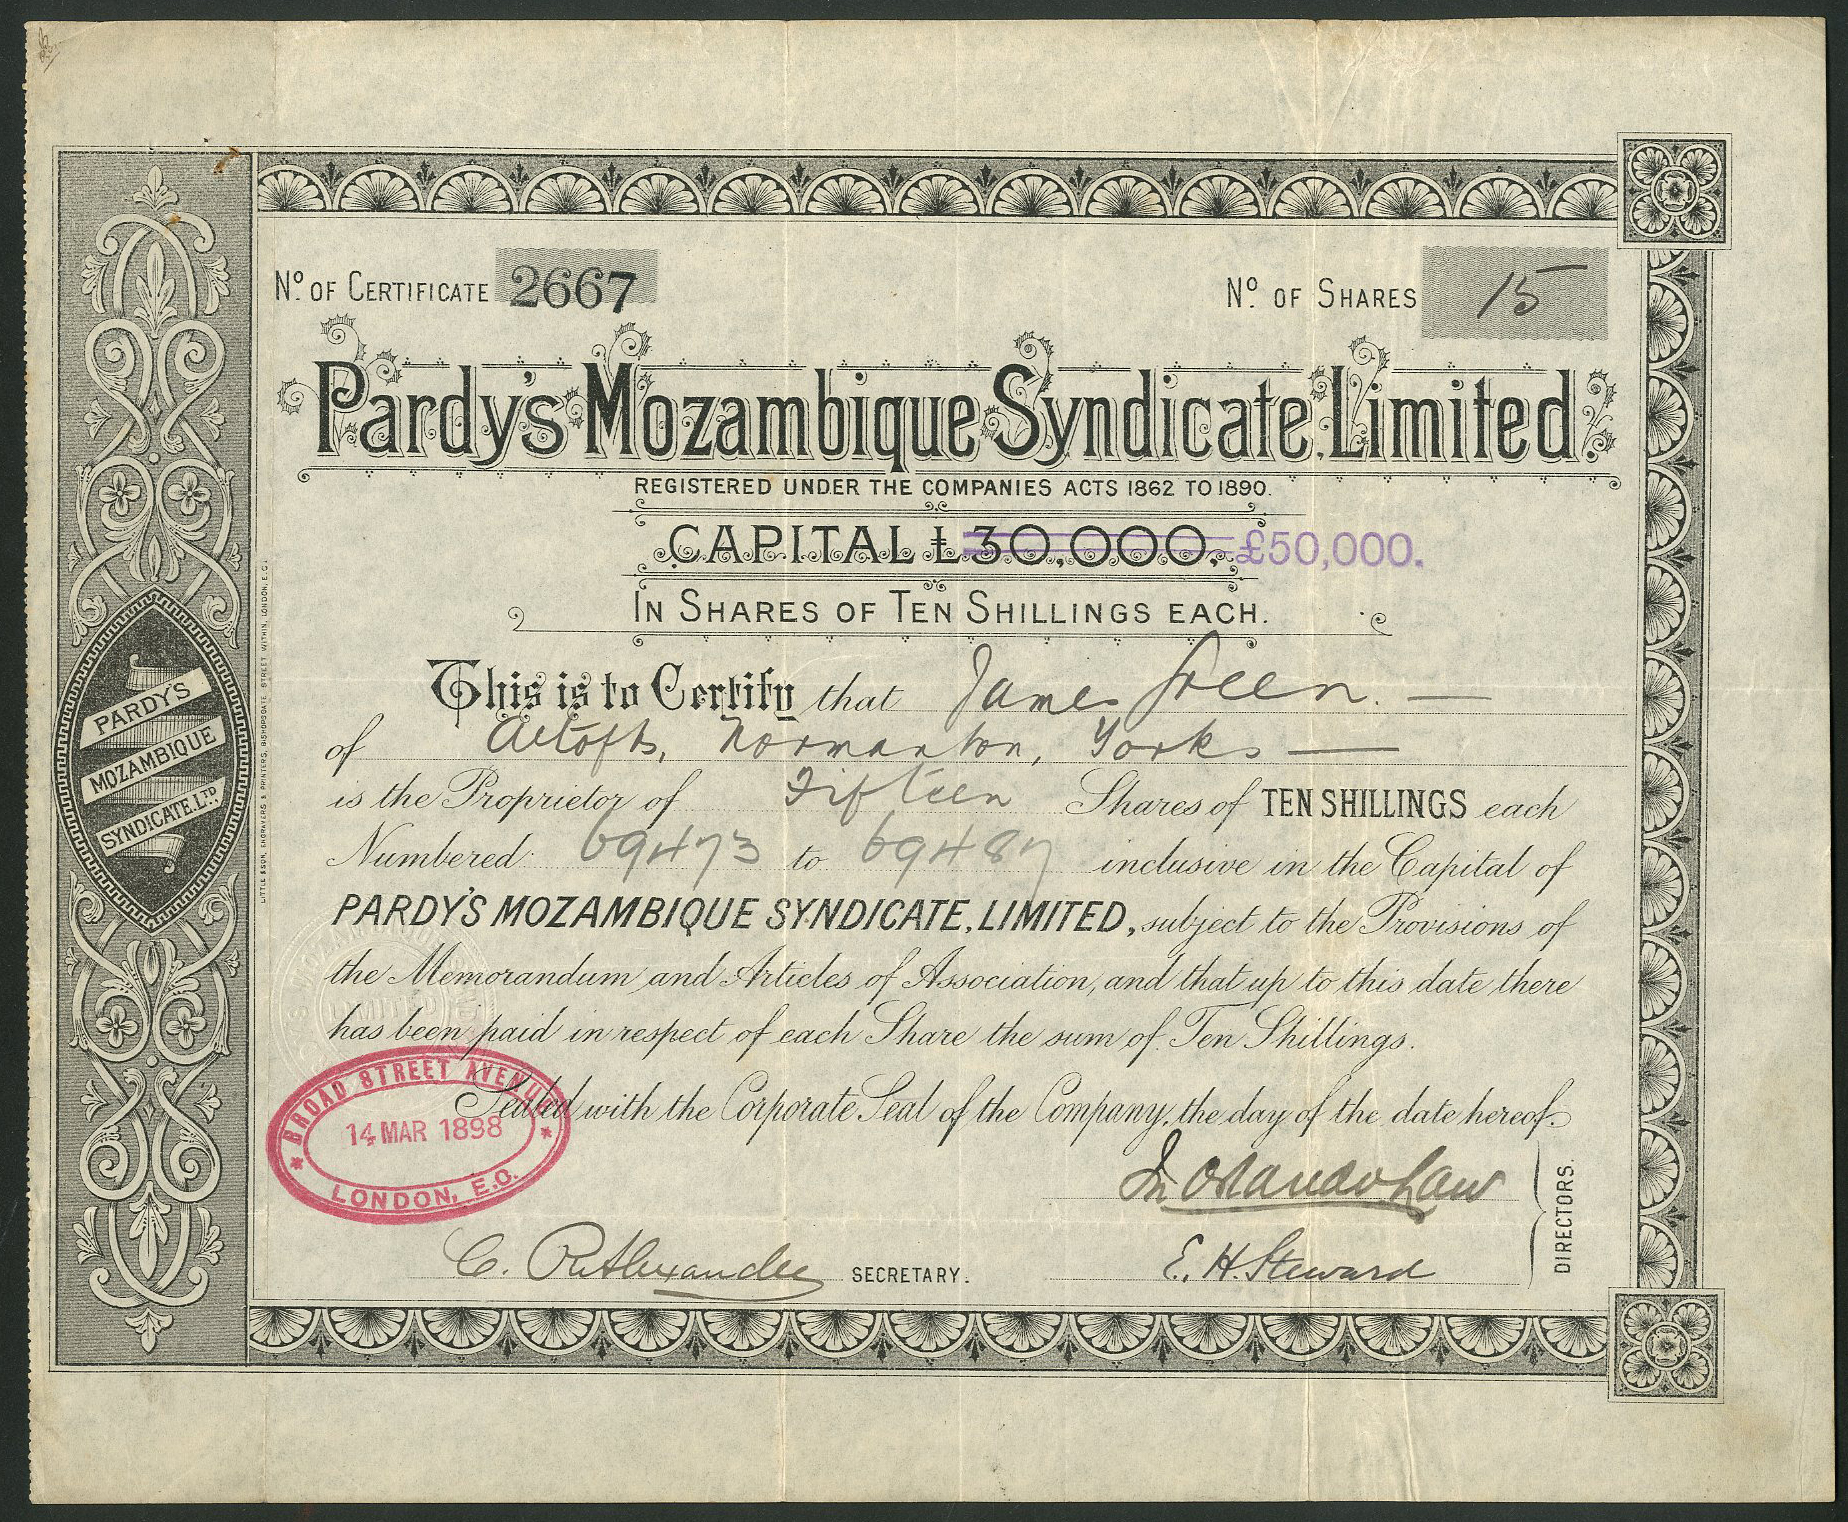 No. OF CERTIFICATE 2667
No. OF SHARES 15
Pardy's Mozambique Syndicate, Limited.
REGISTERED UNDER THE COMPANIES ACTS 1862 TO 1890.
CAPITAL £30,000. £50,000.
IN SHARES OF TEN SHILLINGS EACH.
This is to Certify that James Green. —
of Altofts, Normanton, Yorks —
is the Proprietor of Fifteen Shares of TEN SHILLINGS each
Numbered 69473 to 69487 inclusive in the Capital of
PARDY'S MOZAMBIQUE SYNDICATE, LIMITED, subject to the Provisions of
the Memorandum and Articles of Association, and that up to this date there
has been paid in respect of each Share the sum of Ten Shillings.
Sealed with the Corporate Seal of the Company, the day of the date hereof.
BROAD STREET AVENUE
14 MAR 1898
LONDON, E.C.
E. H. Steward
DIRECTORS.
SECRETARY.
PARDY'S
MOZAMBIQUE
SYNDICATE, LTD.
LITTLE & SON, ENGRAVERS & PRINTERS, BISHOPSGATE STREET WITHIN, LONDON, E.C.
LIMITED